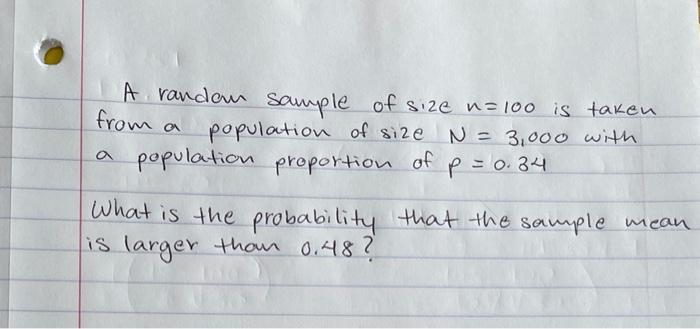 A random sample of size n=100 is taken
from a population of size N = 3,000 with
a population proportion of p = 0.34
What is the probability that the sample mean
is larger than 0.48?